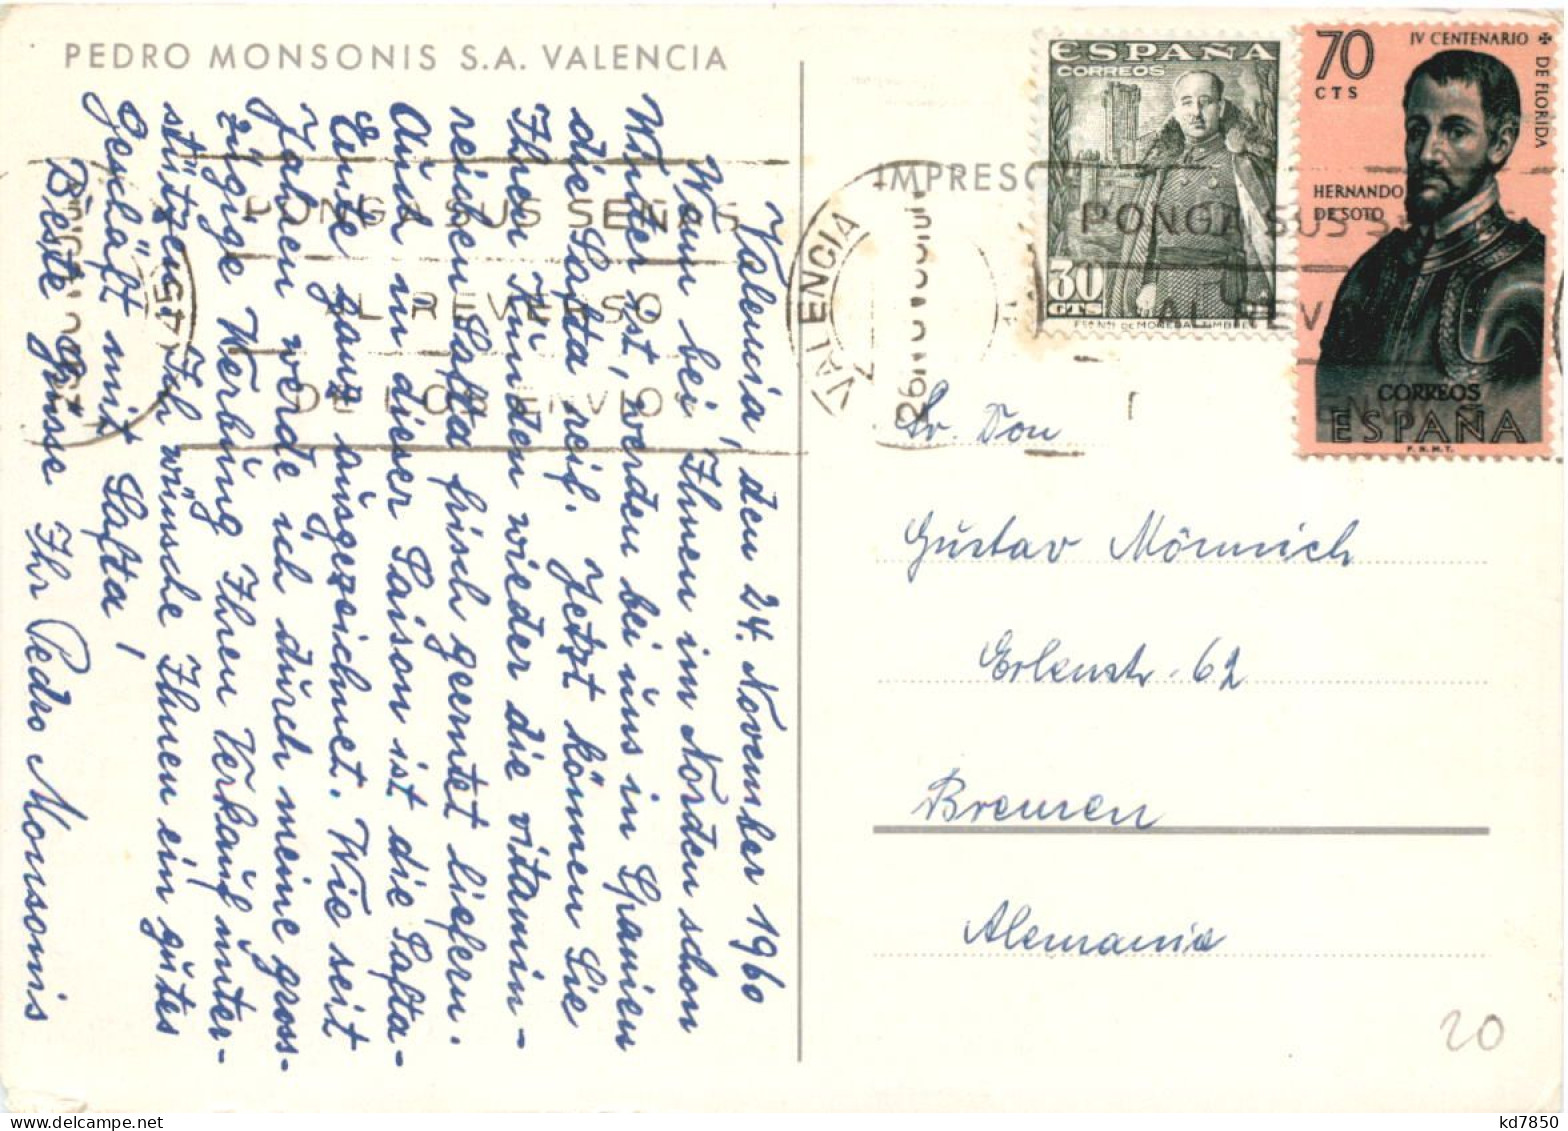 PEDRO MONSONIS S.A. VALENCIA
Valencia, den 24. November 1960
Wenn bei Ihnen im Norden schon
Winter ist, werden bei uns in Spanien
die Safta reif. Jetzt können Sie
Ihren Kunden wieder die vitamin-
reichen Safta frisch geerntet liefern.
Auch in dieser Saison ist die Safta-
Ernte ganz ausgezeichnet. Wie seit
Jahren werde ich durch meine gross-
zügige Werbung Ihren Verkauf unter-
stützen. Ich wünsche Ihnen ein gutes
Geschäft mit Safta!
Beste Grüsse Ihr Pedro Monsonis
PONGA SUS SEÑAS
AL REVERSO
DE LOS ENVIOS
VALENCIA
IMPRESO
ESPAÑA
CORREOS
30
CTS
70
CTS
IV CENTENARIO
DE FLORIDA
HERNANDO
DE SOTO
CORREOS
ESPAÑA
F.N.M.T.
PONGA SUS S
AL REV
Sr. Don
Gustav Mönnich
Erlenstr. 62
Bremen
Alemania
20
kd7850